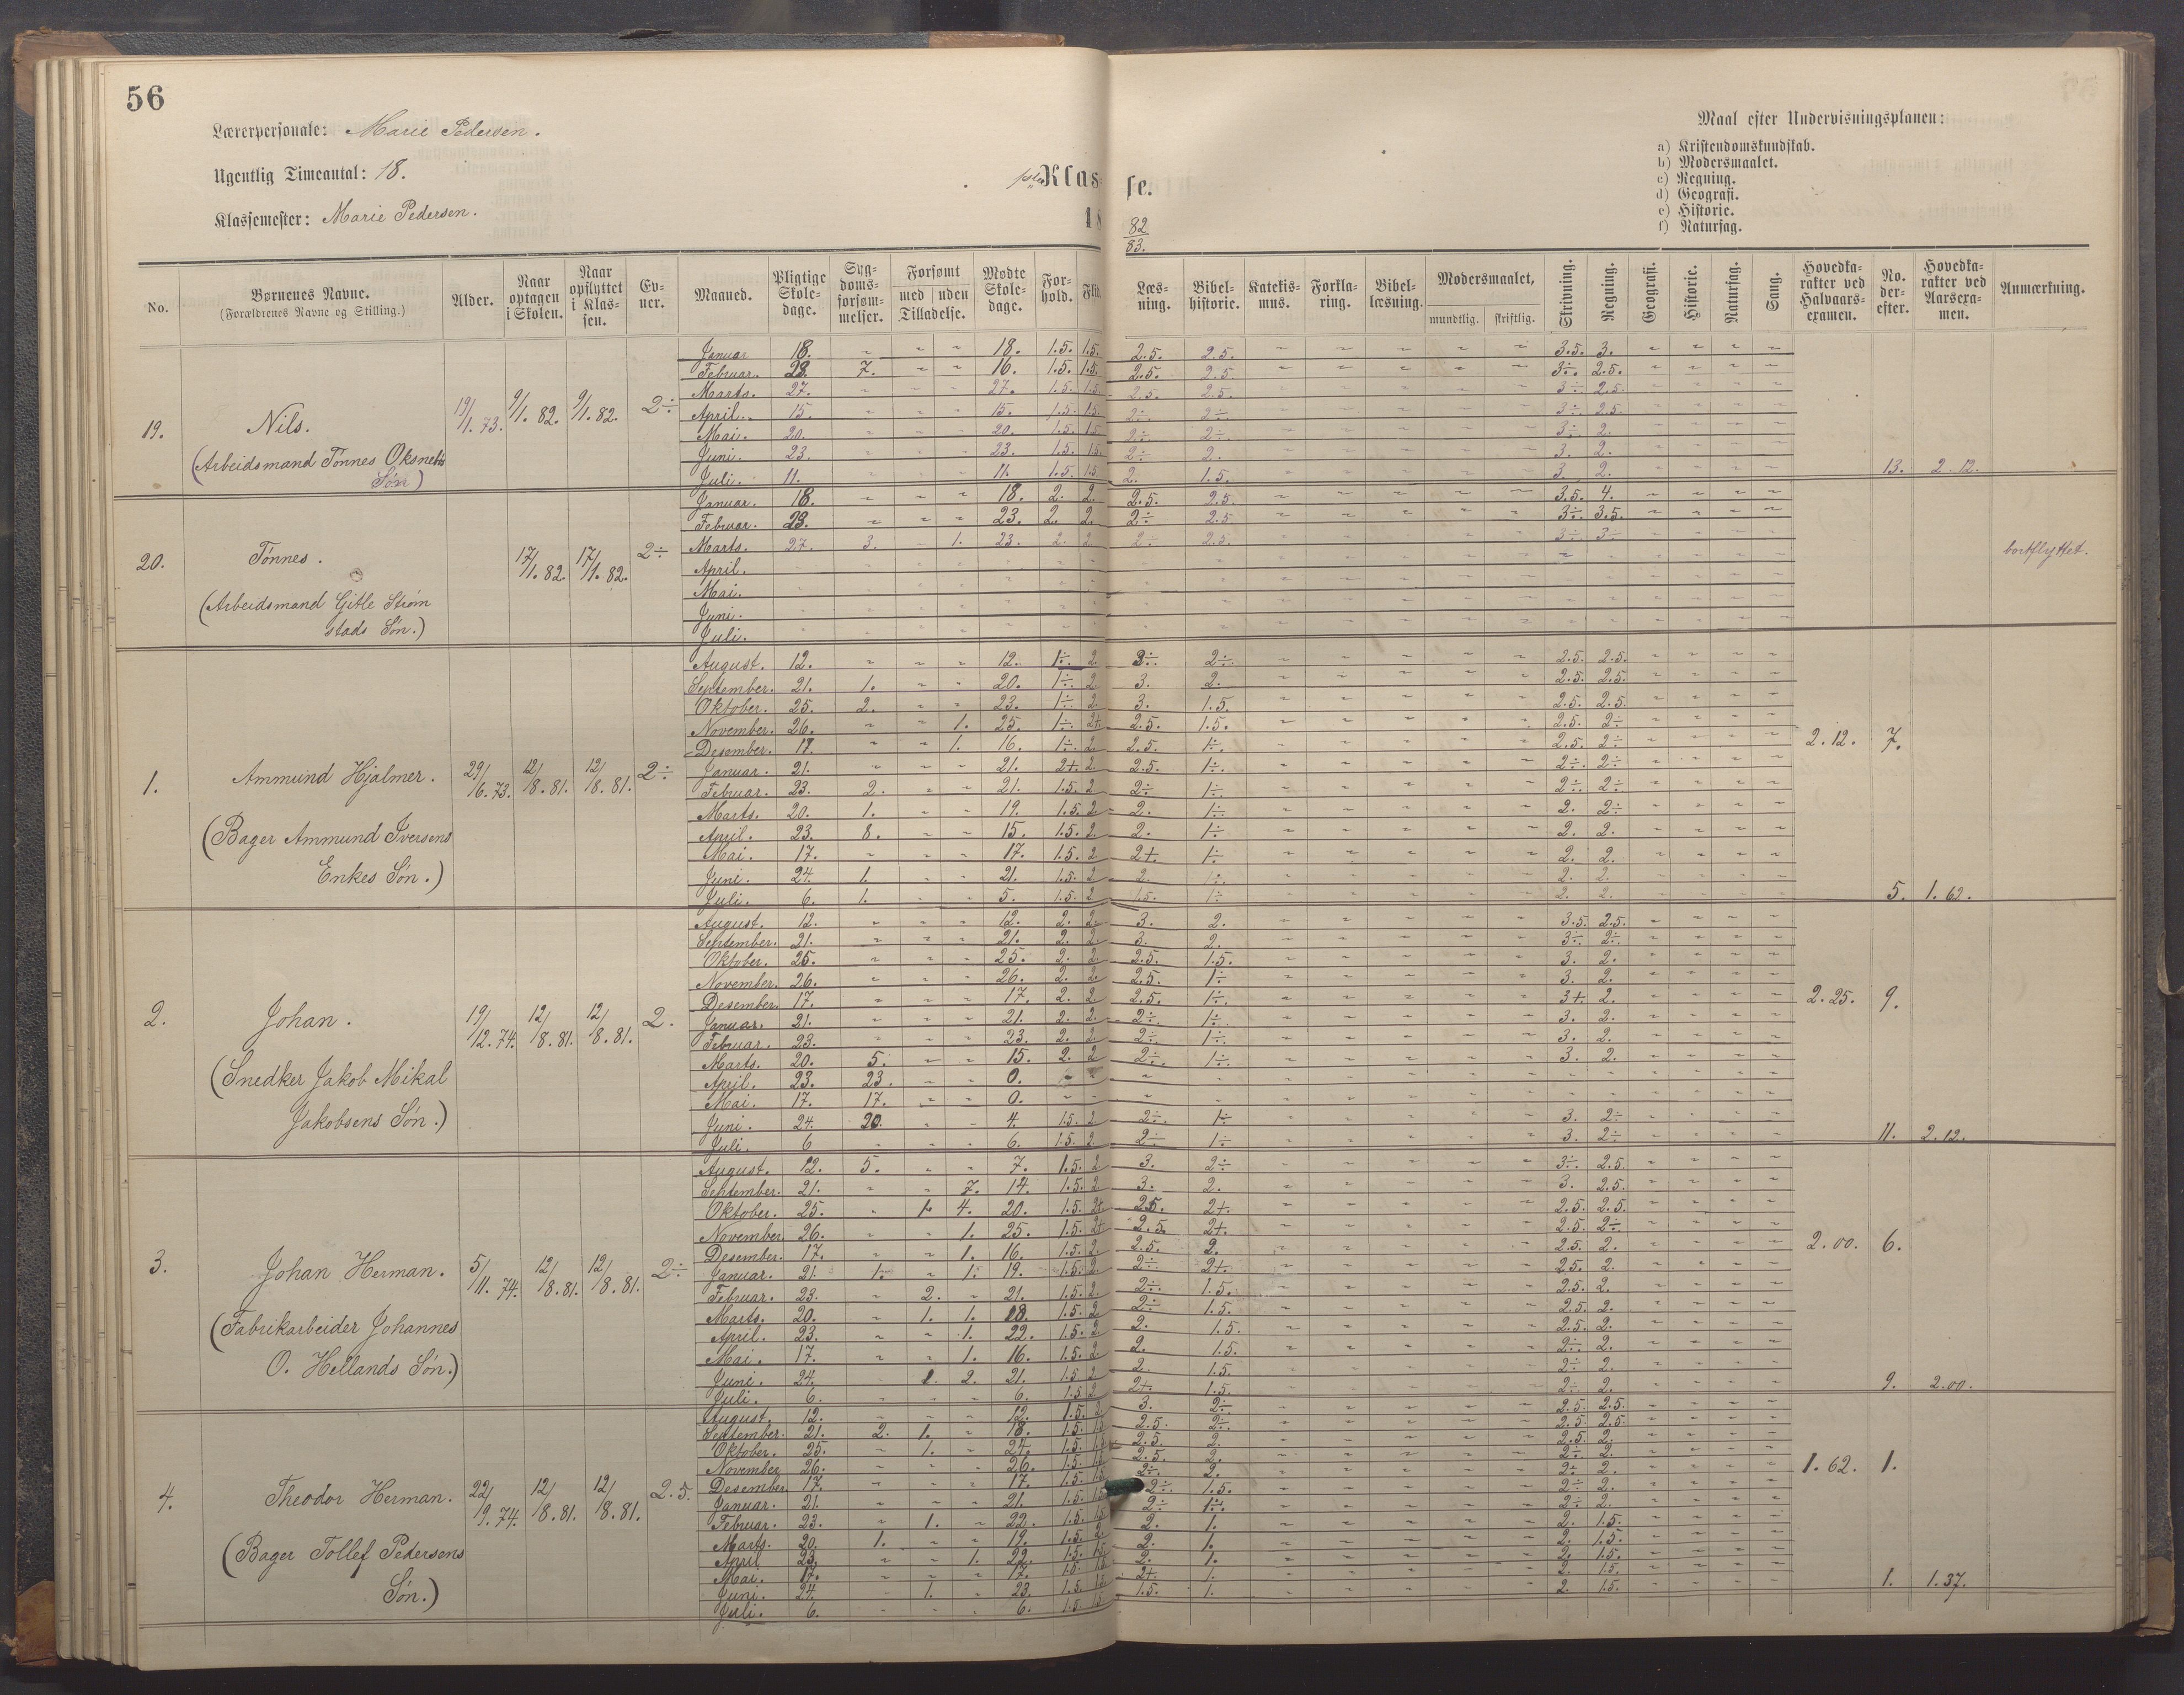 56
Lærerpersonale: Marie Pedersen.
Ugentlig Timeantal: 18.
Klassemester: Marie Pedersen.
1ste Klasse.
18 82/83.
Maal efter Undervisningsplanen:
a) Kristendomskundskab.
b) Modersmaalet.
c) Regning.
d) Geografi.
e) Historie.
f) Naturfag.
No. | Børnenes Navne. (Forældrenes Navne og Stilling.) | Alder. | Naar optagen i Skolen. | Naar opflyttet i Klassen. | Evner. | Maaned. | Pligtige Skoledage. | Sygdomsforsømmelser. | Forsømt med / uden Tilladelse. | Mødte Skoledage. | Forhold. | Flid. | Læsning. | Bibelhistorie. | Katekismus. | Forklaring. | Bibellæsning. | Modersmaalet, mundtlig. skriftlig. | Skrivning. | Regning. | Geografi. | Historie. | Naturfag. | Sang. | Hovedkarakter ved Halvaarsexamen. | No. derefter. | Hovedkarakter ved Aarsexamen. | Anmærkning.
19. Nils. 19/1. 73. 9/1. 82. 9/1. 82. 2÷
(Arbeidsmand Tönnes Oksnebs
Sön)
Januar 18. " " " 18. 1.5. 1.5. 2.5. 2.5. " " " " " 3.5. 3. " " " "
Februar. 23. 7. " " 16. 1.5. 1.5. 2.5. 2.5. " " " " " 3÷. 2.5. " " " "
Marts. 27. " " " 27. 1.5. 1.5. 2.5. 2.5. " " " " " 3÷ 2.5. " " " "
April. 15. " " " 15. 1.5. 1.5. 2÷ 2÷. " " " " " 3÷. 2.5. " " " "
Mai. 20. " " " 20. 1.5. 1.5 2÷ 2÷. " " " " " 3÷. 2. " " " "
Juni. 23. " " " 23. 1.5. 1.5. 2÷ 2. " " " " " 3. 2. " " " "
Juli. 11. " " " 11. 1.5. 1.5. 2. 1.5. " " " " " 3. 2. " " " " 13. 2.12.
20. Tönnes. 17/1. 82. 17/1. 82. 2÷ bortflyttet.
(Arbeidsmand Gitle Ström
stads Sön.)
Januar. 18. " " " 18. 2. 2. 2.5. 2.5. " " " " " 3.5. 4. " " " "
Februar. 23. " " " 23. 2. 2. 2÷ 2.5 " " " " " 3÷. 3.5. " " " "
Marts. 27. 3. " 1. 23. 2. 2 2÷ 2.5. " " " " " 3÷ 3÷ " " " "
April.
Mai.
Juni.
Juli.
1. Ammund Hjalmer. 29/6. 73. 12/8. 81. 12/8. 81. 2÷ 2.12. 7.
(Bager Ammund Iversens
Enkes Sön.)
August. 12. " " " 12. 1÷. 2. 3÷. 2÷. " " " " " 2.5. 2.5. " " " "
September. 21. 1. " " 20. 1÷. 2. 3. 2. " " " " " 2.5. 2.5. " " " "
Oktober. 25. 2. " " 23. 1÷. 2 3. 1.5. " " " " " 2.5. 2.5. " " " "
November. 26. " " 1. 25. 1÷. 2+. 2.5. 1.5. " " " " " 2.5. 2÷ " " " "
Desember. 17. " " 1. 16. 1÷. 2 2.5. 1÷. " " " " " 2.5. 2÷ " " " "
Januar. 21. " " " 21. 2+. 2. 2.5. 1÷. " " " " " 2÷. 2÷ " " " "
Februar. 23. 2. " " 21. 1.5. 2 2÷ 1÷. " " " " " 2÷. 2÷ " " " "
Marts. 20. 1. " " 19. 1.5. 2. 2. 1÷. " " " " " 2. 2÷ " " " "
April. 23. 8. " " 15. 1.5. 2. 2. 1÷ " " " " " 2. 2. " " " "
Mai. 17. " " " 17. 1.5. 2 2+. 1÷ " " " " " 2. 2. " " " "
Juni. 24. 1. " " 21. 1.5. 2 2. 1÷. " " " " " 2. 2. " " " "
Juli. 6. 1. " " 5. 1.5. 2 1.5. 1÷ " " " " " 2. 2. " " " " 5. 1.62.
2. Johan. 19/12. 74. 12/8. 81. 12/8. 81. 2. 2.25. 9.
(Snedker Jakob Mikal
Jakobsens Sön.)
August. 12. " " " 12. 2. 2. 3. 2. " " " " " 3.5. 2.5. " " " "
September. 21. " " " 21. 2. 2. 3. 2. " " " " " 3÷. 2÷. " " " "
Oktober. 25. " " " 25. 2. 2. 2.5. 1.5. " " " " " 3. 2. " " " "
November. 26. " " " 26. 2. 2. 2.5. 1÷ " " " " " 3. 2. " " " "
Desember. 17. " " " 17. 2. 2 2.5. 1÷. " " " " " 3+. 2. " " " "
Januar. 21. " " " 21. 2. 2. 2÷. 1÷. " " " " " 3. 2. " " " "
Februar. 23. " " " 23. 2. 2. 2÷ 1÷. " " " " " 3. 2. " " " "
Marts. 20. 5. " " 15. 2. 2 2÷. 1÷. " " " " " 3. 2. " " " "
April. 23. 23. " " 0. " "
Mai. 17. 17. " " 0. " "
Juni. 24. 20. " " 4. 1.5. 2 2÷. 1÷ " " " " " 3. 2÷ " " " "
Juli. 6 " " " 6. 1.5. 2. 2÷ 1÷ " " " " " 3. 2÷ " " " " 11. 2.12.
3. Johan Herman. 5/11. 74. 12/8. 81. 12/8. 81. 2÷ 2.00. 6.
(Fabrikarbeider Johannes
O. Hellands Sön.)
August. 12. 5. " " 7. 1.5. 2 3. 2÷ " " " " " 3÷. 2.5. " " " "
September. 21. " " 7. 14. 1.5. 2. 3. 2. " " " " " 3. 2.5. " " " "
Oktober. 25. " 1. 4. 20. 1.5. 2+ 2.5. 2+. " " " " " 2.5. 2.5. " " " "
November 26. " " 1. 25. 1.5. 2+ 2.5. 2+. " " " " " 2.5. 2÷. " " " "
Desember. 17. " " 1. 16. 1.5. 2. 2.5. 2. " " " " " 2.5. 2. " " " "
Januar. 21. 1. " 1. 19. 1.5. 2. 2÷ 2+. " " " " " 2.5. 2. " " " "
Februar. 23. " 2. " 21. 1.5. 2. 2÷. 1.5. " " " " " 2.5. 2. " " " "
Marts. 20. " 1. 1. 18. 1.5. 2 2÷ 1.5. " " " " " 2.5. 2. " " " "
April. 23. " " 1. 22. 1.5. 2 2. 1.5. " " " " " 2.5. 2. " " " "
Mai. 17. " " 1. 16. 1.5. 2. 2. 1.5. " " " " " 2÷. 2. " " " "
Juni. 24. " 1. 2. 21. 1.5 2 2. 1.5. " " " " " 2÷ 2. " " " "
Juli. 6. " " " 6. 1.5 2 2+. 1.5. " " " " " 2÷ 2. " " " " 9. 2.00.
4. Theodor Herman. 22/9. 74. 12/8. 81. 12/8. 81. 2.5. 1.62. 1.
(Bager Tollef Pedersens
Sön.)
August. 12. " " " 12. 1.5. 2. 3. 2÷ " " " " " 2.5. 2.5. " " " "
September. 21. 2. 1. " 18. 1.5. 1.5 2.5. 2÷. " " " " " 2.5. 2.5. " " " "
Oktober. 25. " 1. " 24. 1.5. 1.5 2.5. 2. " " " " " 2.5. 2. " " " "
November 26. " " " 26. 1.5. 1.5 2.5. 2. " " " " " 2÷. 2. " " " "
Desember 17. " " " 17. 1.5. 1.5 2÷. 2. " " " " " 2÷ 2. " " " "
Januar. 21. " " " 21. 1.5. 1.5 2÷. 1.5. " " " " " 2÷ 2. " " " "
Februar. 23. " 1. " 22. 1.5. 1.5 2÷ 1÷. " " " " " 2÷ 2. " " " "
Marts. 20. 1. " " 19. 1.5. 2 2. 1. " " " " " 2. 1.5. " " " "
April 23. " " 1. 22. 1.5. 1.5 2. 1. " " " " " 2. 1.5. " " " "
Mai. 17. " " " 17. 1.5. 1.5 2. 1. " " " " " 2. 1.5. " " " "
Juni. 24. " 1. " 23. 1.5. 1.5 2+. 1. " " " " " 2. 1.5. " " " "
Juli. 6. " " " 6. 1.5. 1.5 1.5. 1. " " " " " 2. 1.5. " " " " 1. 1.37.